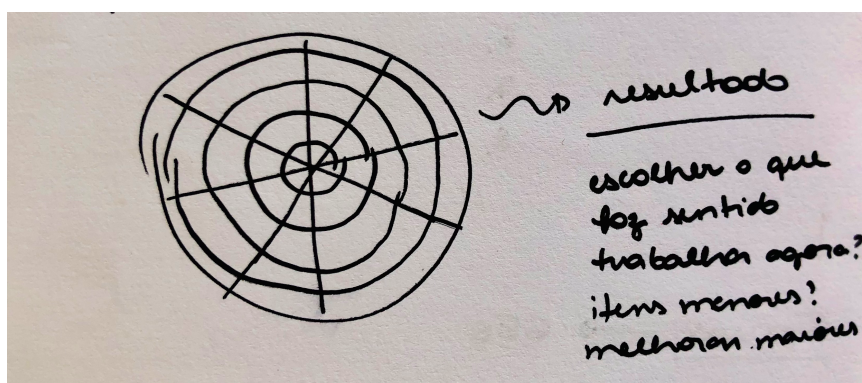 resultado
escolher o que
faz sentido
trabalhar agora?
itens menores?
melhorar maiores